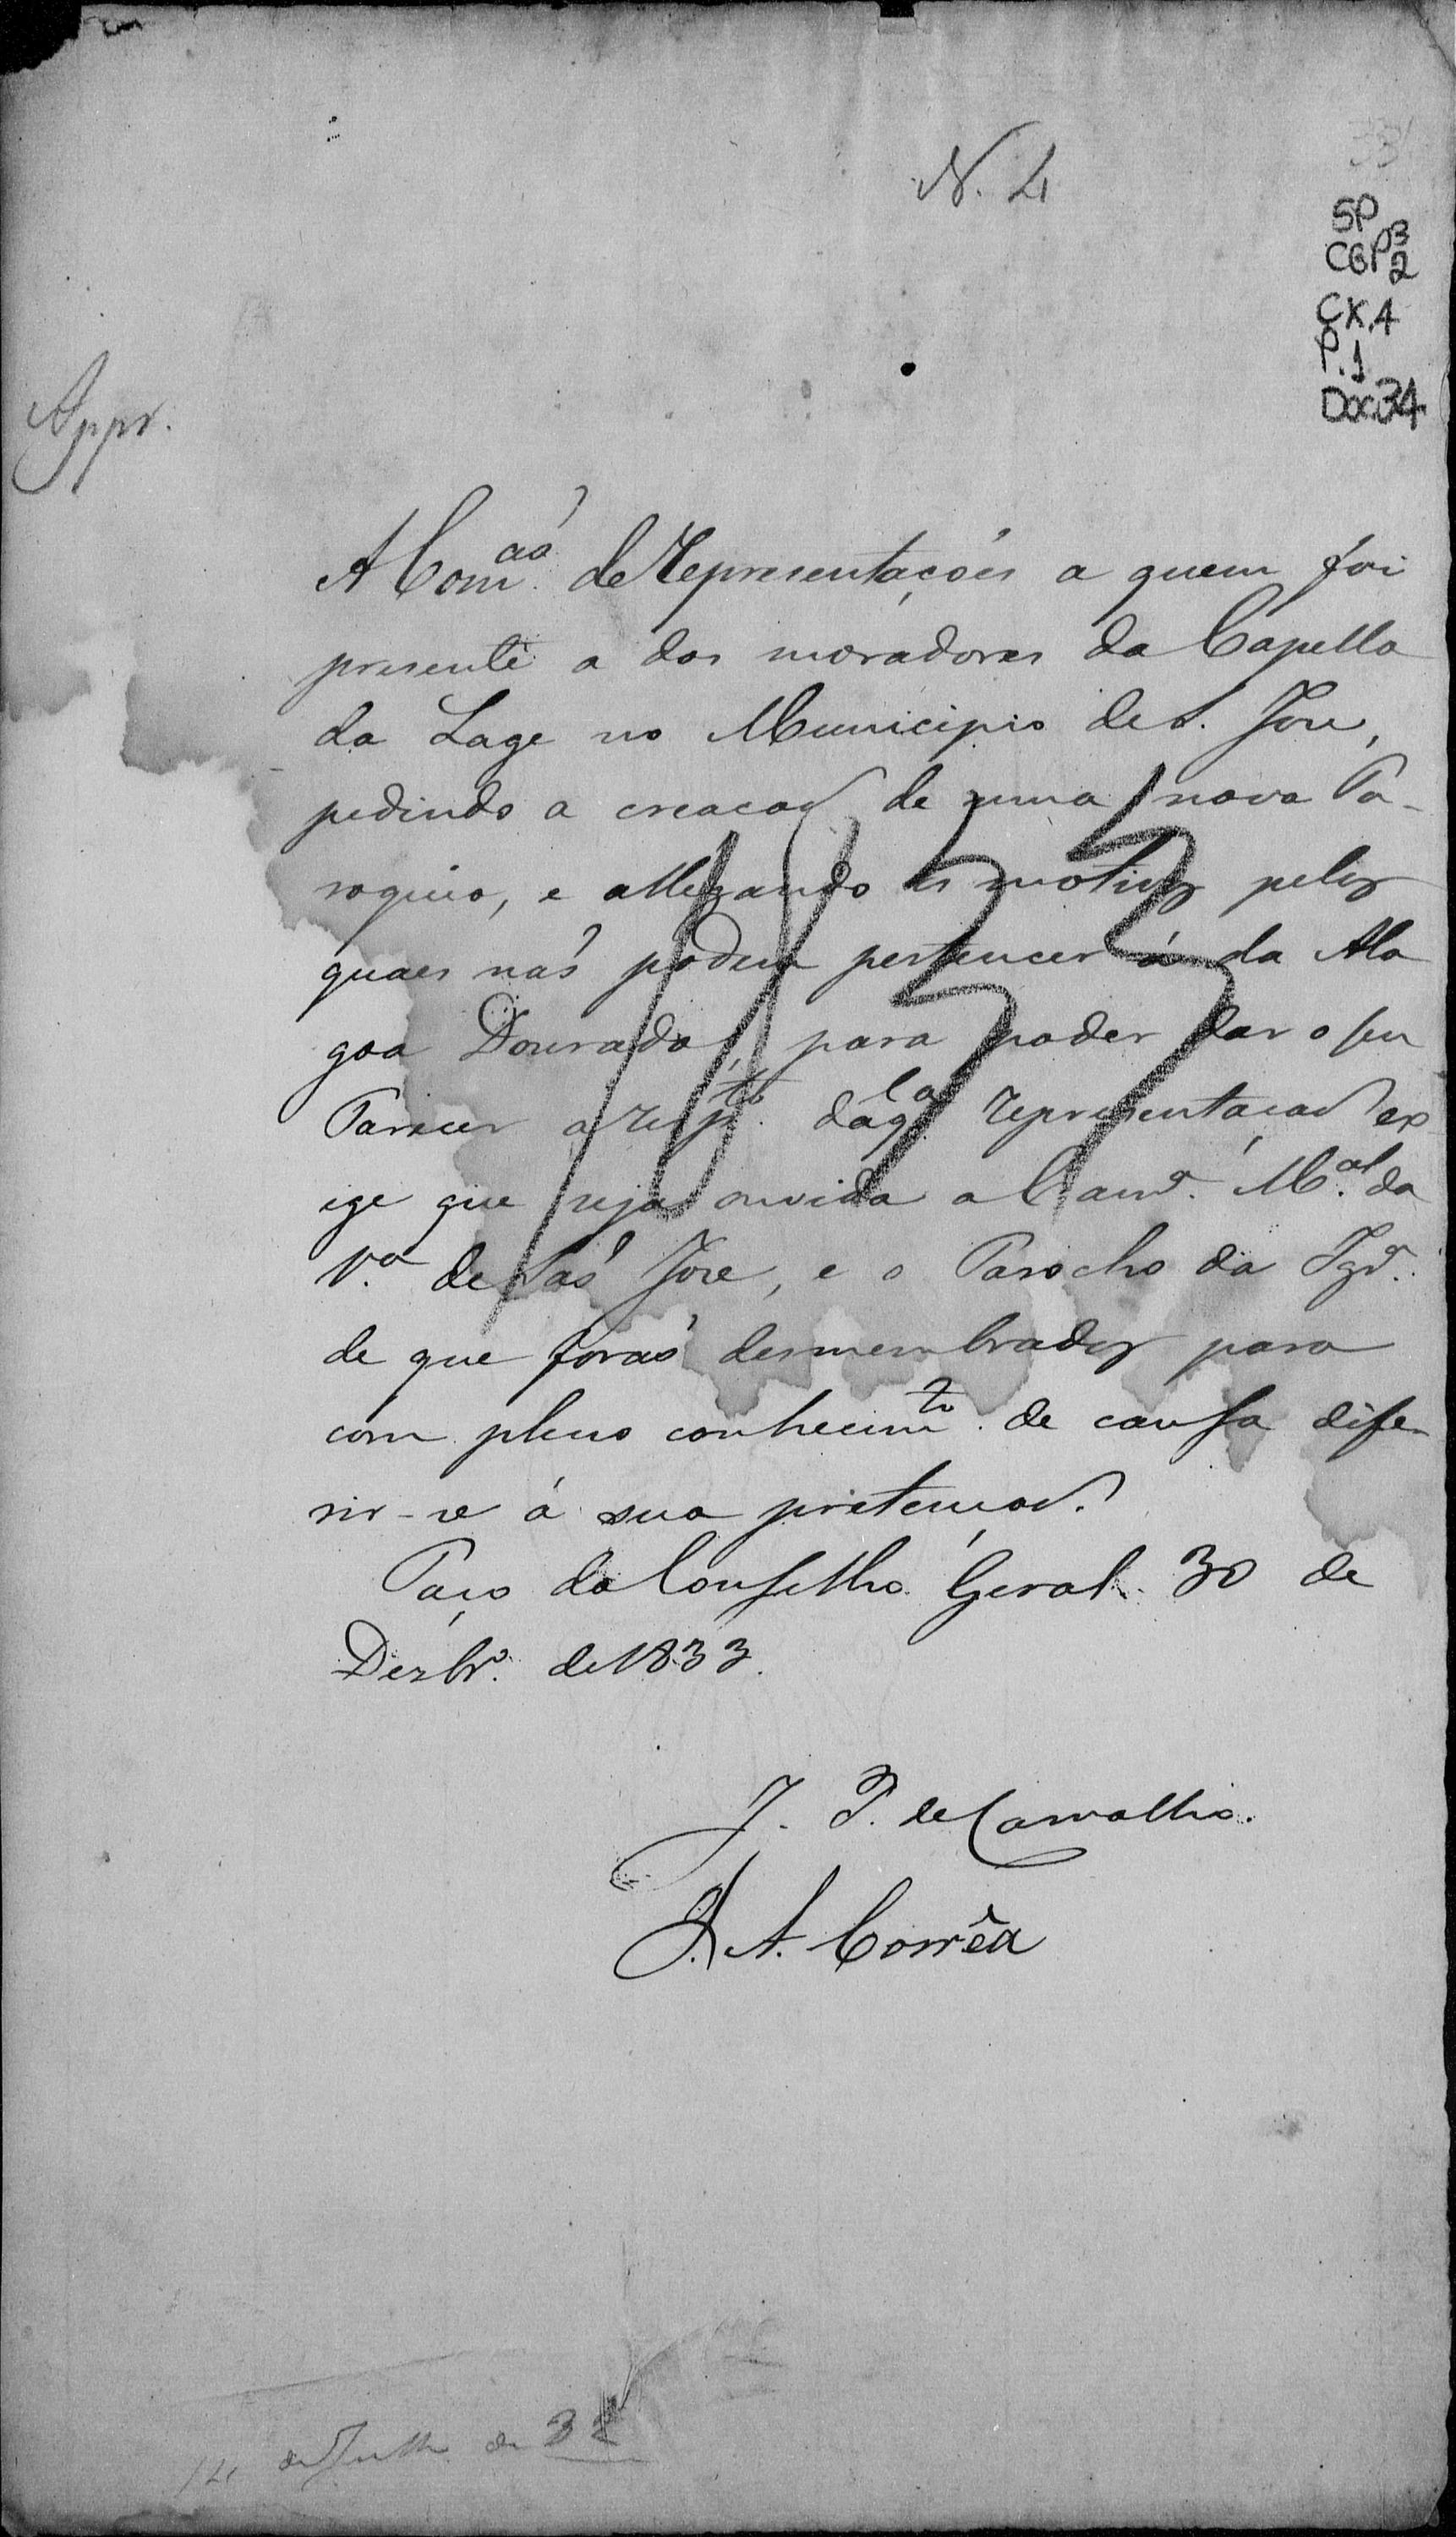 N. 4
SP
CGP 3
2
CX. 4
P. 1
Doc. 34
Appr.
A Com.ão de Representações a quem foi
presente a dos moradores da Capella
da Lage no Municipio de S. Jose,
pedindo a creacaõ de uma nova Pa-
roquia, e allegando os motivos pelos
quaes naõ podem pertencer á da Ala
goa Dourada, para poder dar o seu
Parecer a resp.to daq.la representaçaõ ex
ige que seja ouvida a Cam.ª M.al da
V.ª de Saõ Jose, e o Parocho da Igr.ª
de que foraõ desmembrados para
com pleno conhecim.to de causa dife-
rir-se á sua pretençaõ.
Paço do Conselho Geral 30 de
Dezbr.º de 1833.
1833
J. P. de Carvalho.
J. A. Corrêa
14 de Julho de